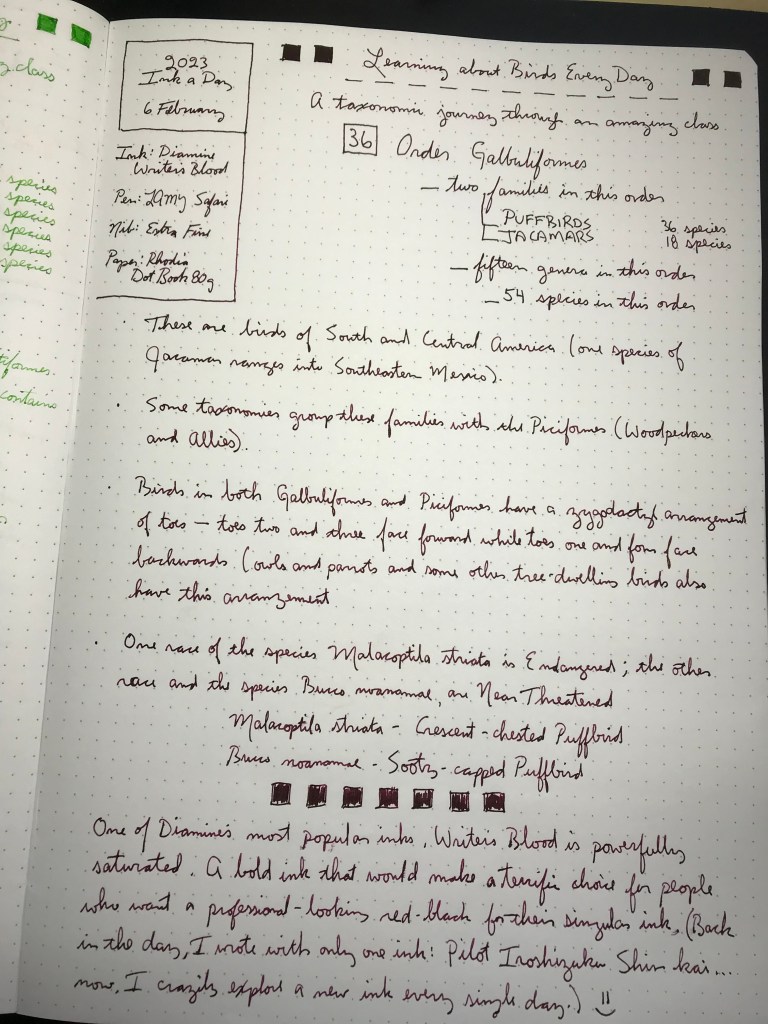 class
species
species
species
species
species
species
contains
2023
Ink a Day
6 February
Ink: Diamine
Writer's Blood
Pen: LAMY Safari
Nib: Extra Fine
Paper: Rhodia
Dot Book 80g
Learning about Birds Every Day
A taxonomic journey through an amazing class
36 Order Galbuliformes
— two families in this order
PUFFBIRDS 36 species
JACAMARS 18 species
— fifteen genera in this order
— 54 species in this order
· These are birds of South and Central America (one species of
Jacamar ranges into Southeastern Mexico).
· Some taxonomies group these families with the Piciformes (Woodpeckers
and Allies).
· Birds in both Galbuliformes and Piciformes have a zygodactyl arrangement
of toes — toes two and three face forward while toes one and four face
backwards (owls and parrots and some other tree-dwelling birds also
have this arrangement
· One race of the species Malacoptila striata is Endangered; the other
race and the species Bucco noanamae, are Near Threatened
Malacoptila striata - Crescent-chested Puffbird
Bucco noanamae - Sooty-capped Puffbird
One of Diamine's most popular inks, Writer's Blood is powerfully
saturated. A bold ink that would make a terrific choice for people
who want a professional-looking red-black for their singular ink. (Back
in the day, I wrote with only one ink: Pilot Iroshizuku Shin kai...
now, I crazily explore a new ink every single day.)